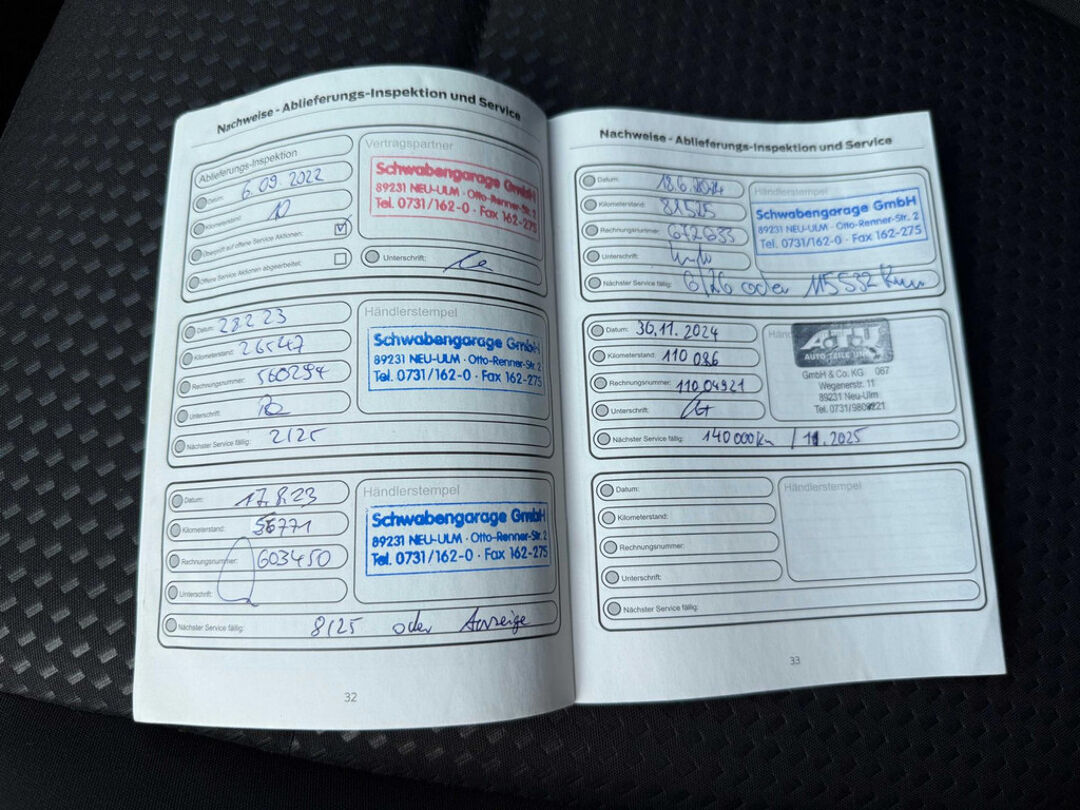 Nachweise - Ablieferungs-Inspektion und Service
Ablieferungs-Inspektion
Datum: 6.09.2022
Kilometerstand: 10
Überprüft auf offene Service Aktionen:
Offene Service Aktionen abgearbeitet:
Vertragspartner
Schwabengarage GmbH
89231 NEU-ULM · Otto-Renner-Str. 2
Tel. 0731/162-0 · Fax 162-275
Unterschrift:
Datum: 28.2.23
Kilometerstand: 26547
Rechnungsnummer: 560294
Unterschrift:
Nächster Service fällig: 2/25
Händlerstempel
Schwabengarage GmbH
89231 NEU-ULM · Otto-Renner-Str. 2
Tel. 0731/162-0 · Fax 162-275
Datum: 17.8.23
Kilometerstand: 56771
Rechnungsnummer: 603450
Unterschrift:
Nächster Service fällig: 8/25 oder Anzeige
Händlerstempel
Schwabengarage GmbH
89231 NEU-ULM · Otto-Renner-Str. 2
Tel. 0731/162-0 · Fax 162-275
32
Nachweise - Ablieferungs-Inspektion und Service
Datum: 18.6.2024
Kilometerstand: 81525
Rechnungsnummer: 612633
Unterschrift:
Nächster Service fällig: 6/26 oder 115532 Km
Händlerstempel
Schwabengarage GmbH
89231 NEU-ULM · Otto-Renner-Str. 2
Tel. 0731/162-0 · Fax 162-275
Datum: 30.11.2024
Kilometerstand: 110 086
Rechnungsnummer: 110 04921
Unterschrift:
Nächster Service fällig: 140 000 km / 11.2025
A.T.U
AUTO TEILE UNGER
GmbH & Co. KG 067
Wegenerstr. 11
89231 Neu-Ulm
Datum:
Kilometerstand:
Rechnungsnummer:
Unterschrift:
Nächster Service fällig:
Händlerstempel
33